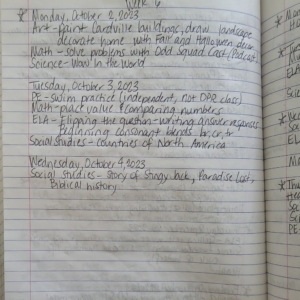 Week 6
* Monday, October 2, 2023
Art - paint Cardville buildings, draw landscape
decorate home with Fall and Halloween decor
Math - solve problems with Odd Squad Cast, Podcast
Science - Wow! In the World
Tuesday, October 3, 2023
PE - swim practice (independent, not DPR class)
Math - place value & comparing numbers
ELA - Flipping the question - writing answer responses
Beginning consonant blends br, cr, tr
Social Studies - Countries of North America
Wednesday, October 4, 2023
Social Studies - Story of Stingy Jack, Paradise Lost,
Biblical history